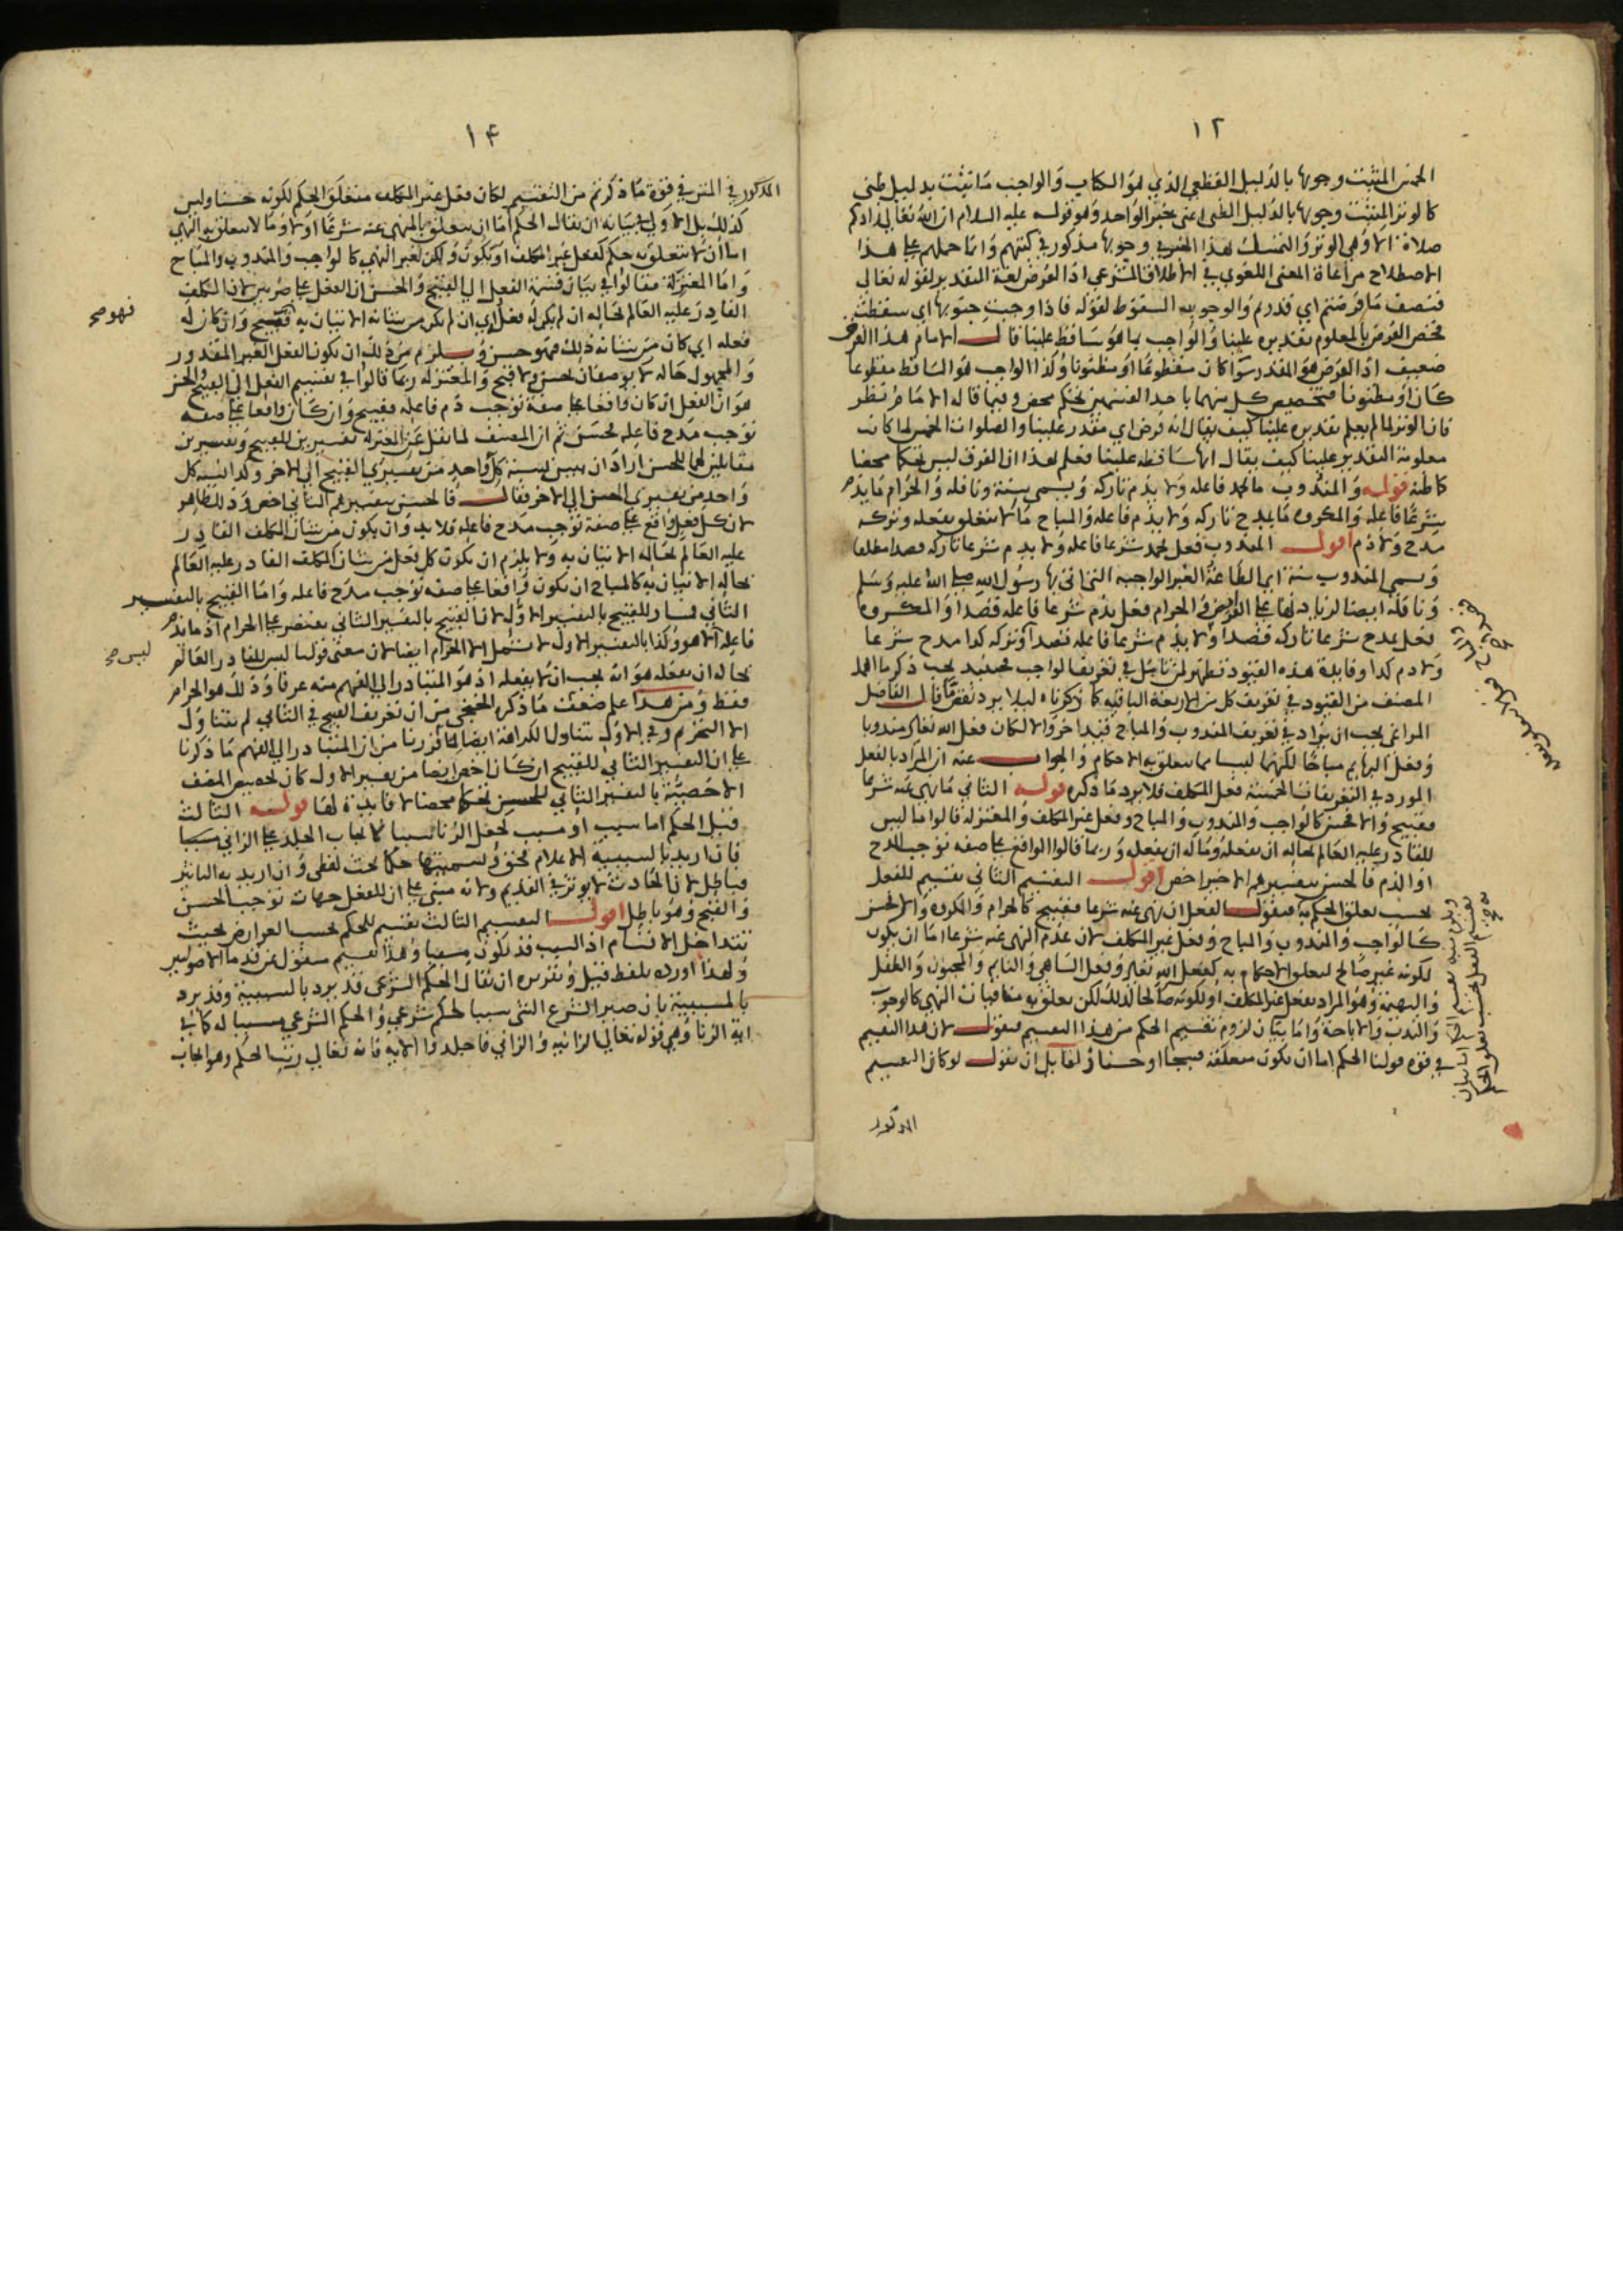 ١٢
الخمس المثبت وجوبها بالدليل القطعي الذي هو الكتاب والواجب ما يثبت بدليل ظني
كالوتر المثبت وجوبها بالدليل الظني اعني بخبر الواحد وهو قوله عليه السلام ان الله تعالى زادكم
صلاة الا وهي الوتر والتمسك لهذا الفرق وجوبها مذكور في كتبهم وانما حملهم على هذا
الاصطلاح مراعاة المعنى اللغوي في الاطلاق الشرعي اذ الفرض لغة التقدير لقوله تعالى
فنصف ما فرضتم اي قدرتم والوجوب السقوط لقوله فاذا وجبت جنوبها اي سقطت
فخص الفرض بالمعلوم تقديره علينا والواجب بما هو ساقط علينا قال الامام هذا الفرق
ضعيف اذ الفرض هو المقدر سوا كان مقطوعا او مظنونا وكذا الواجب هو الساقط مقطوعا
كان او مظنونا فتخصيص كل منهما باحد القسمين تحكم محض وفيما قاله الامام نظر
فان الوتر لما لم يعلم تقديره علينا كيف يقال انه فرض اي مقدر علينا والصلوات الخمس لما كانت
معلومة التقدير علينا كيف يقال انها ساقطة علينا فعلم لهذا ان الفرق ليس تحكما محضا
كما ظنه قوله والمندوب ما يحمد فاعله ولا يذم تاركه ويسمى سنة ونافلة والحرام ما يذم
شرعا فاعله والمكروه ما يمدح تاركه ولا يذم فاعله والمباح ما لا يتعلق بفعله وتركه
مدح ولا ذم اقول المندوب فعل يحمد شرعا فاعله ولا يذم شرعا تاركه قصدا مطلقا
ويسمى المندوب سنة ايما الطاعة الغير الواجبة التي اتى بها رسول الله صلى الله عليه وسلم
ونافلة ايضا لزيادتها على الفرض والحرام فعل يذم شرعا فاعله قصدا والمكروه
فعل يمدح شرعا تاركه قصدا ولا يذم شرعا فاعله قصدا وتركه كذا مدح شرعا
ولا ذم كذا وفايدة هذه القيود تظهر لمن تأمل في تعريف الواجب فحينئذ يجب ذكر ما اهمله
المصنف من القيود في تعريف كل من الاربعة الباقية كما ذكرناه ليلا يرد نقض قال الفاضل
المراغي يجب ان يزاد في تعريف المندوب والمباح قيدا اخر والا لكان فعل الله تعالى مندوبا
وفعل البهايم مباحا لكنهما ليسا مما يتعلق به الاحكام والجواب عنه ان المراد بالفعل
المورد في التعريفات الخمسة فعل المكلف فلا يرد ما ذكره قوله الثاني ما نهي عنه شرعا
فقبيح والا فحسن كالواجب والمندوب والمباح وفعل غير المكلف والمعتزلة قالوا ما ليس
للقادر عليه العالم بحاله ان يفعله وما له ان يفعله وربما قالوا الواقع على صفة توجب المدح
او الذم فالحسن بتفسيرهم الاخير اخص اقول التقسيم الثاني تقسيم للفعل
بحسب تعلق الحكم به فنقول الفعل ان نهي عنه شرعا فقبيح كالحرام والمكروه والا فحسن
كالواجب والمندوب والمباح وفعل غير المكلف لان عدم النهي عنه شرعا اما ان يكون
لكونه غير صالح لتعلق الاحكام به كفعل الله تعالى وفعل الساهي والنايم والمجنون والطفل
والبهيمة وهو المراد بفعل غير المكلف او لكونه صالحا لذلك لكن يعلق به منافيات النهي كالوجوب
والندب والاباحة واما بيان لزوم تقسيم الحكم من هذا التقسيم فنقول لان هذا التقسيم
في قوة قولنا الحكم اما ان يكون متعلقه قبيحا او حسنا ولقايل ان يقول لو كان التقسيم
المذكور
١٤
المذكور في المتن في قوة ما ذكرتم من التقسيم لكان فعل غير المكلف متعلق الحكم لكونه حسنا وليس
كذلك بل الاولى في بيانه ان يقال الحكم اما ان يتعلق بالمنهي عنه شرعا اولا وما لا يتعلق به النهي
اما ان لا يتعلق به حكم كفعل غير المكلف او يكون ولكن لغير النهي كالواجب والمندوب والمباح
واما المعتزلة فقالوا في بيان قسمة الفعل الى القبيح والحسن ان الفعل على ضربين لان المكلف
القادر عليه العالم بحاله ان لم يكن له فعله اي ان لم يكن من شانه الاتيان به فقبيح وان كان له
فعله اي كان من شانه ذلك فهو حسن ويلزم من ذلك ان يكون الفعل الغير المقدور
والمجهول حاله لا يوصفان بحسن ولا قبح والمعتزلة ربما قالوا في تقسيم الفعل الى القبيح والحسن
هو ان الفعل ان كان واقعا على صفة توجب ذم فاعله فقبيح وان كان واقعا على صفة
توجب مدح فاعله فحسن ثم ان المصنف لما نقل عن المعتزلة تفسيرين للقبيح وتفسيرين
مقابلين لهما للحسن اراد ان يبين نسبة كل واحد من تفسيري القبيح الى الاخر وكذا نسبة كل
واحد من تفسيري الحسن الى الاخر فقال فالحسن بتفسيرهم الثاني اخص وذلك ظاهر
لان كل فعل واقع على صفة توجب مدح فاعله فلا بد وان يكون من شان المكلف القادر
عليه العالم بحاله الاتيان به ولا يلزم ان يكون كل فعل من شان المكلف القادر عليه العالم
بحاله الاتيان به كالمباح ان يكون واقعا على صفة توجب مدح فاعله واما القبيح بالتفسير
الثاني فمساو للقبيح بالتفسير الاول لان القبيح بالتفسير الثاني يقتصر على الحرام اذ ما يذم
فاعله الا هو وكذا بالتفسير الاول لا يشمل الا الحرام ايضا لان معنى قولنا ليس للقادر العالم
بحاله ان يفعله هو انه يجب ان لا يفعله اذ هو المتبادر الى الفهم منه عرفا وذلك هو الحرام
فقط ومن هذا علم ضعف ما ذكره الخنجي من ان تعريف القبيح في الثاني لم يتناول
الا التحريم وفي الاول يتناول الكراهة ايضا لما قررنا من ان المتبادر الى الفهم ما ذكرنا
على ان التفسير الثاني للقبيح ان كان اخص ايضا من تفسير الاول كان تخصيص المصنف
الاخصية بالتفسير الثاني للحسن تحكما محضا لا فايدة لها قوله الثالث
قيل الحكم اما سبب او مسبب كجعل الزنا سببا لايجاب الجلد على الزاني
فان اريد بالسببية الاعلام فحق وتسميتها حكما بحث لفظي وان اريد به التاثير
فباطل لان الحادث لا يوثر في القديم ولانه مبني على ان للفعل جهات توجب الحسن
والقبح وهو باطل اقول التقسيم الثالث تقسيم للحكم بحسب العوارض بحيث
تتداخل الاقسام اذ السبب قد يكون مسببا وهذا تقسيم منقول عن قدما الاصوليين
ولهذا اورده بلفظ قيل وتقريره ان يقال الحكم الشرعي قد يرد بالسببية وقد يرد
بالمسببية بان صير الشرع الشي سببا لحكم شرعي والحكم الشرعي مسببا له كما في
اية الزنا وهي قوله تعالى الزانية والزاني فاجلدوا الاية فانه تعالى رتب الحكم وهو ايجاب
فهو صح
ليس صح